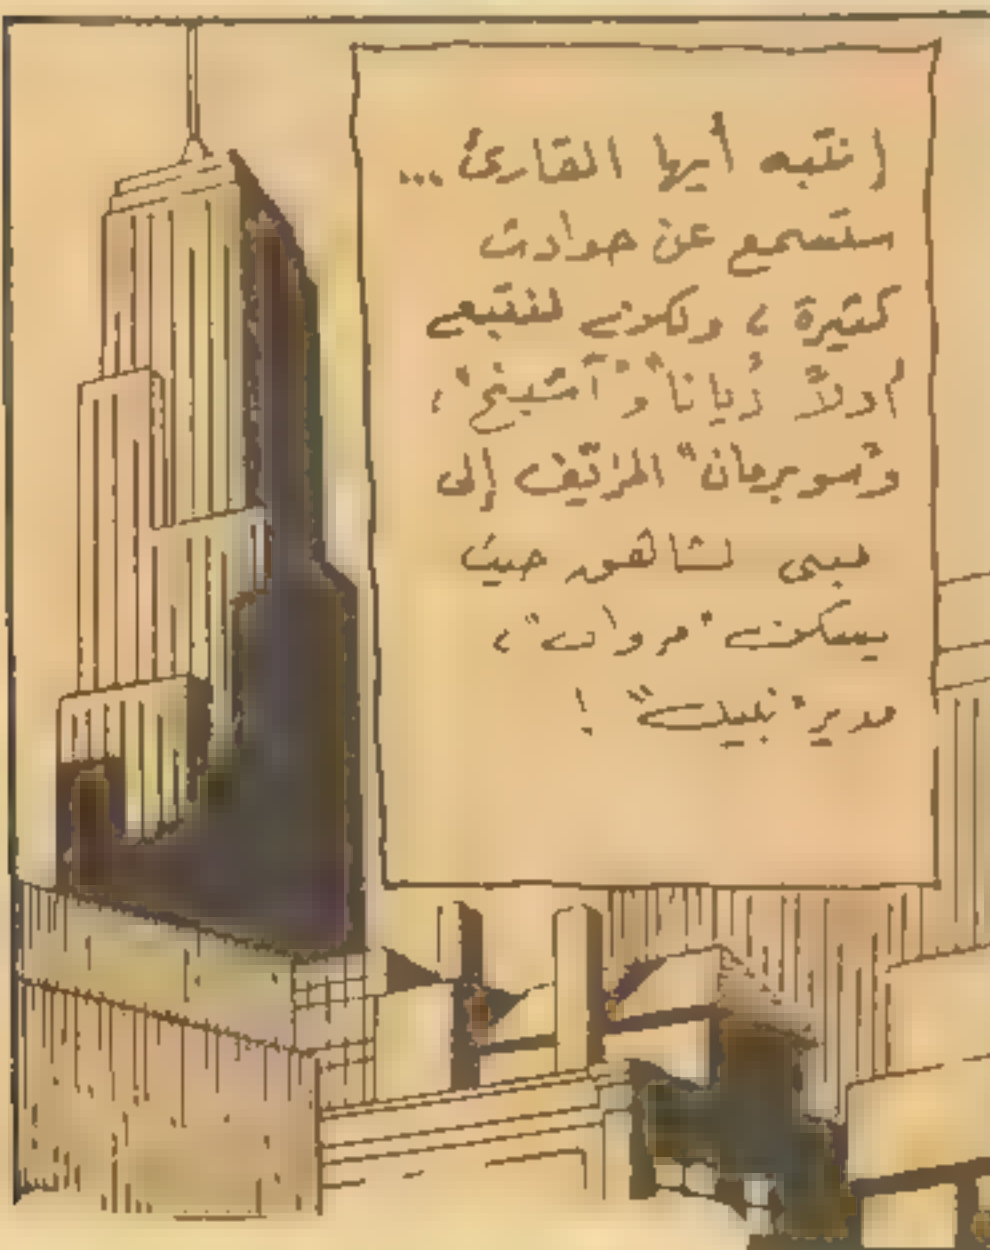 إنتبه أيها القارئ ...
ستسمع عن حوادث
كثيرة ، ولكن لنتبع
أولاً "ديانا" و "آشيخ" ،
و "سوبرمان" المزيّف إلى
مبنى حيث
يسكن "مروان" ،
مدير "نبيل" !